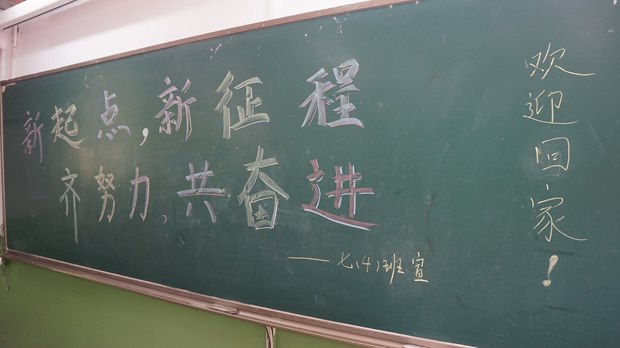 新起点,新征程
齐努力,共奋进
——七(4)班宣
欢迎回家!